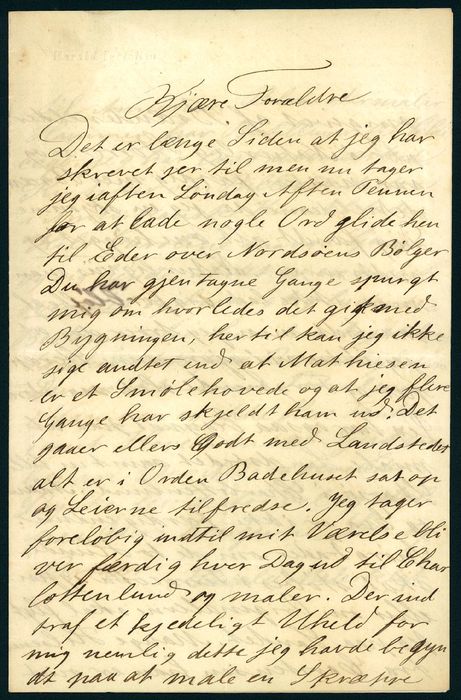 Kjære Forældre
Det er længe Siden at jeg har
skrevet jer til men nu tager
jeg iaften Søndag Aften Pennen
for at lade nogle Ord glide hen
til Eder over Nordsøens Bølger
Du har gjentagne Gange spurgt
mig om hvorledes det gik med
Bygningen, hertil kan jeg ikke
sige andtet end at Mathiesen
er et Smølehovede og at jeg flere
Gange har skjeldt ham ud. Det
gaaer ellers Godt med Landstedet
alt er i Orden Badehuset sat op
og Leierne tilfredse. Jeg tager
foreløbig indtil mit Værelse bli
ver færdig hver Dag ud til Char
lottenlund og maler. Der ind
traf et kjedeligt Uheld for
mig nemlig dette jeg havde begyn
dt paa at male en Skræppe